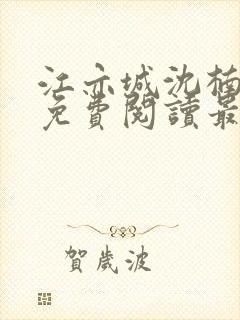 江亦城沈楠
免費閱讀最
賀歲波